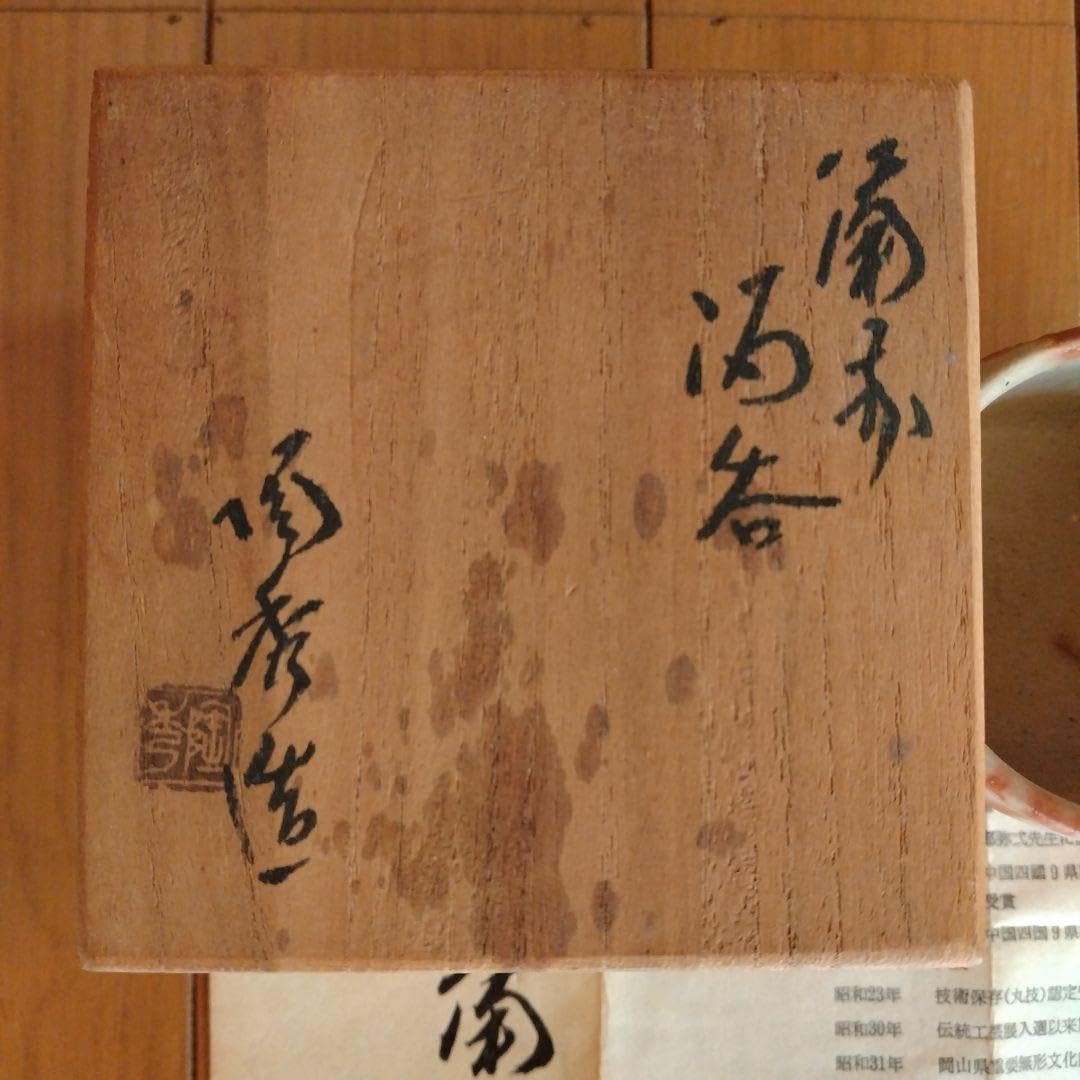 備前
酒呑
陶秀造
陶秀
弥弌先生に
中国四國9県
受賞
中国四国9県
昭和23年 技術保存(丸技)認定
昭和30年 伝統工芸展入選以来
昭和31年 岡山県重要無形文化
備